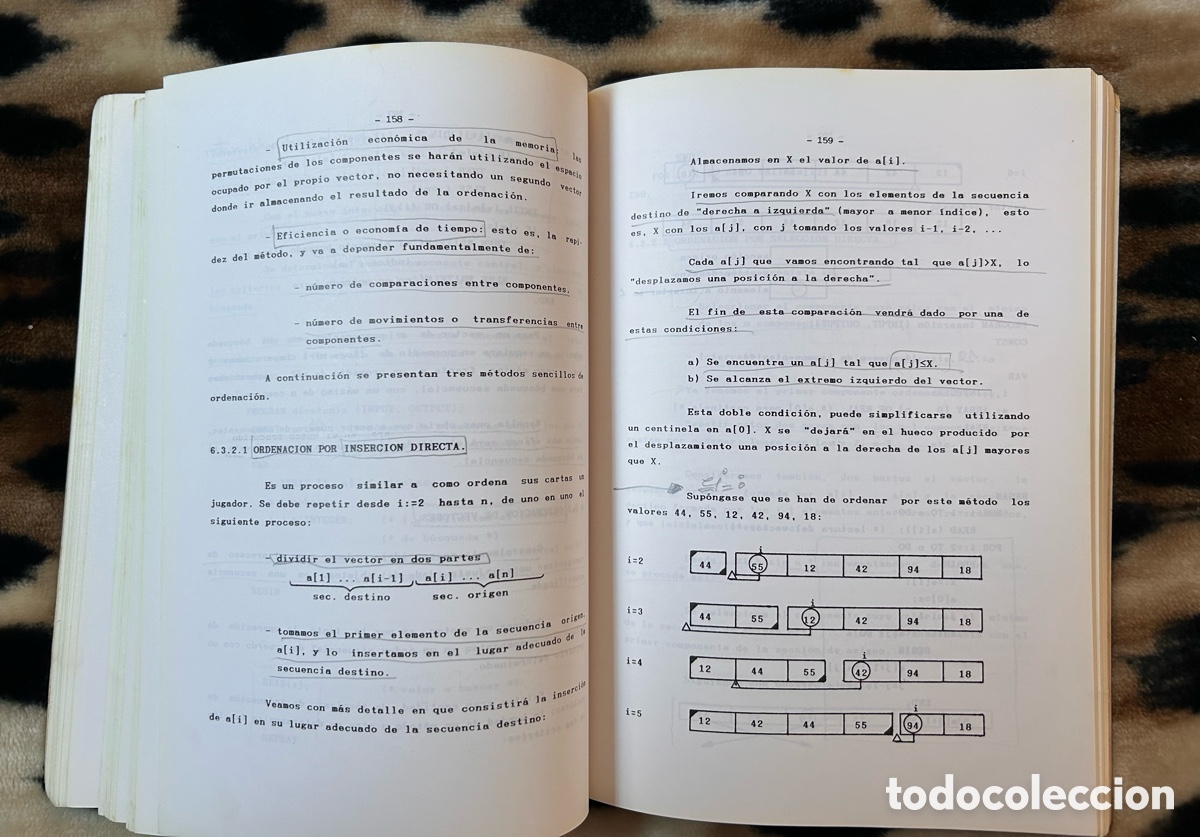 - 158 -
- Utilización económica de la memoria: las
permutaciones de los componentes se harán utilizando el espacio
ocupado por el propio vector, no necesitando un segundo vector
donde ir almacenando el resultado de la ordenación.
- Eficiencia o economía de tiempo: esto es, la rapi-
dez del método, y va a depender fundamentalmente de:
- número de comparaciones entre componentes.
- número de movimientos o transferencias entre
componentes.
A continuación se presentan tres métodos sencillos de
ordenación.
6.3.2.1 ORDENACION POR INSERCION DIRECTA.
Es un proceso similar a como ordena sus cartas un
jugador. Se debe repetir desde i:=2 hasta n, de uno en uno el
siguiente proceso:
- dividir el vector en dos partes
a[1] ... a[i-1] a[i] ... a[n]
sec. destino sec. origen
- tomamos el primer elemento de la secuencia origen,
a[i], y lo insertamos en el lugar adecuado de la
secuencia destino.
Veamos con más detalle en que consistirá la inserción
de a[i] en su lugar adecuado de la secuencia destino:
- 159 -
Almacenamos en X el valor de a[i].
Iremos comparando X con los elementos de la secuencia
destino de "derecha a izquierda" (mayor a menor índice), esto
es, X con los a[j], con j tomando los valores i-1, i-2, ...
Cada a[j] que vamos encontrando tal que a[j]>X, lo
"desplazamos una posición a la derecha".
El fin de esta comparación vendrá dado por una de
estas condiciones:
a) Se encuentra un a[j] tal que a[j]≤X.
b) Se alcanza el extremo izquierdo del vector.
Esta doble condición, puede simplificarse utilizando
un centinela en a[0]. X se "dejará" en el hueco producido por
el desplazamiento una posición a la derecha de los a[j] mayores
que X.
Supóngase que se han de ordenar por este método los
valores 44, 55, 12, 42, 94, 18:
i
i=2 44 55 12 42 94 18
i
i=3 44 55 12 42 94 18
i
i=4 12 44 55 42 94 18
i
i=5 12 42 44 55 94 18
todocoleccion